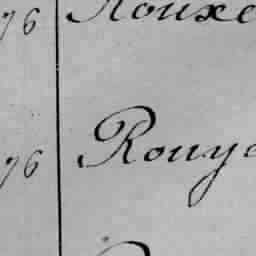 76 Rouxe
76 Rouye